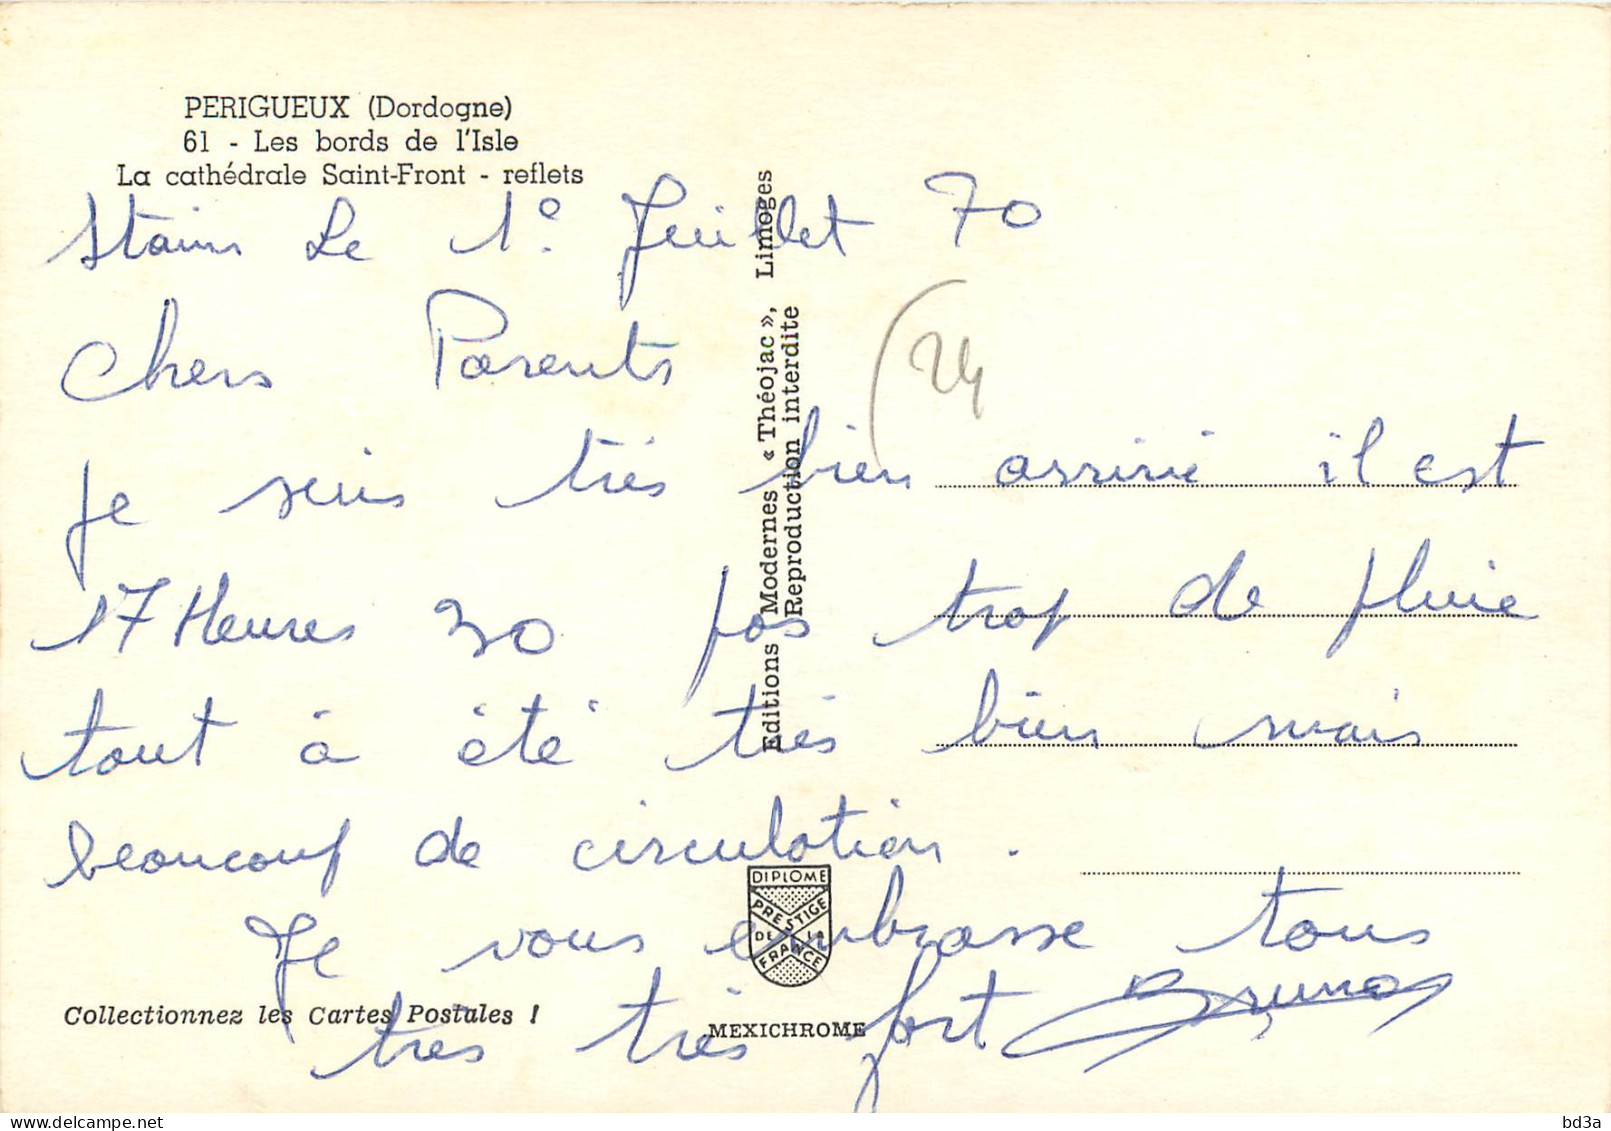 PERIGUEUX (Dordogne)
61 - Les bords de l'Isle
La cathédrale Saint-Front - reflets
Stains Le 1° Juillet 70
Chers Parents
(24
Je suis très bien arrivé il est
17 Heures 30 pas trop de pluie
tout à été très bien mais
beaucoup de circulation.
Je vous embrasse tous
très très fort Bruno
Editions Modernes « Théojac », Limoges
Reproduction interdite
DIPLOME
PRESTIGE
DE LA
FRANCE
Collectionnez les Cartes Postales !
MEXICHROME
bd3a